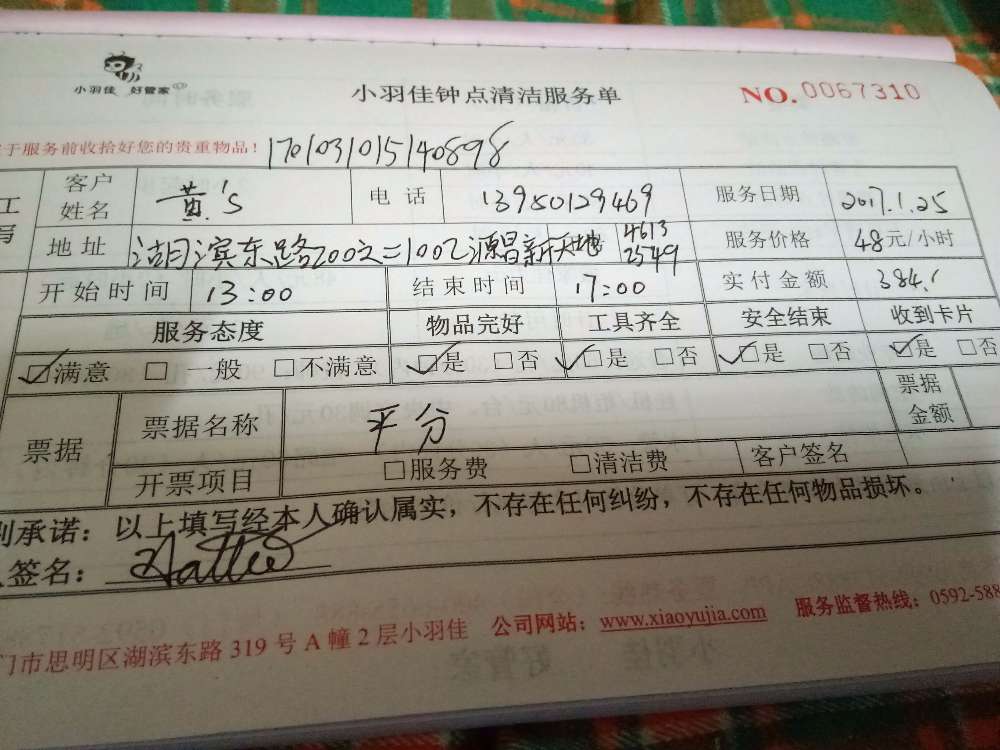 小羽佳 好管家
小羽佳钟点清洁服务单
NO.0067310
于服务前收拾好您的贵重物品!
170103101514 0898
客户姓名 黄's 电话 13950129469 服务日期 2017.1.25
地址 湖滨东路 源昌新天地 4613 2549 服务价格 48元/小时
开始时间 13:00 结束时间 17:00 实付金额 384.
服务态度 物品完好 工具齐全 安全结束 收到卡片
☑满意 □一般 □不满意 ☑是 □否 ☑是 □否 ☑是 □否 ☑是 □否
票据 票据名称 平分 票据金额
开票项目 □服务费 □清洁费 客户签名
别承诺:以上填写经本人确认属实,不存在任何纠纷,不存在任何物品损坏。
签名:
门市思明区湖滨东路 319 号 A 幢 2 层小羽佳 公司网站:www.xiaoyujia.com 服务监督热线:0592-588